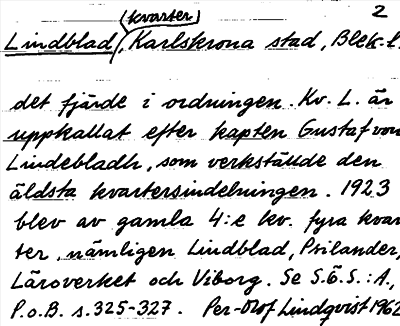 (kvarter) 2
Lindblad, Karlskrona stad, Blek.l.
det fjärde i ordningen. Kv. L. är
uppkallat efter kapten Gustaf von
Lindebladh, som verkställde den
äldsta kvartersindelningen. 1923
blev av gamla 4:e kv. fyra kvar
ter, nämligen Lindblad, Psilander,
Läroverket och Viborg. Se S.Ö.S.:A.,
P.o.B. s. 325-327. Per-Olof Lindqvist 1962